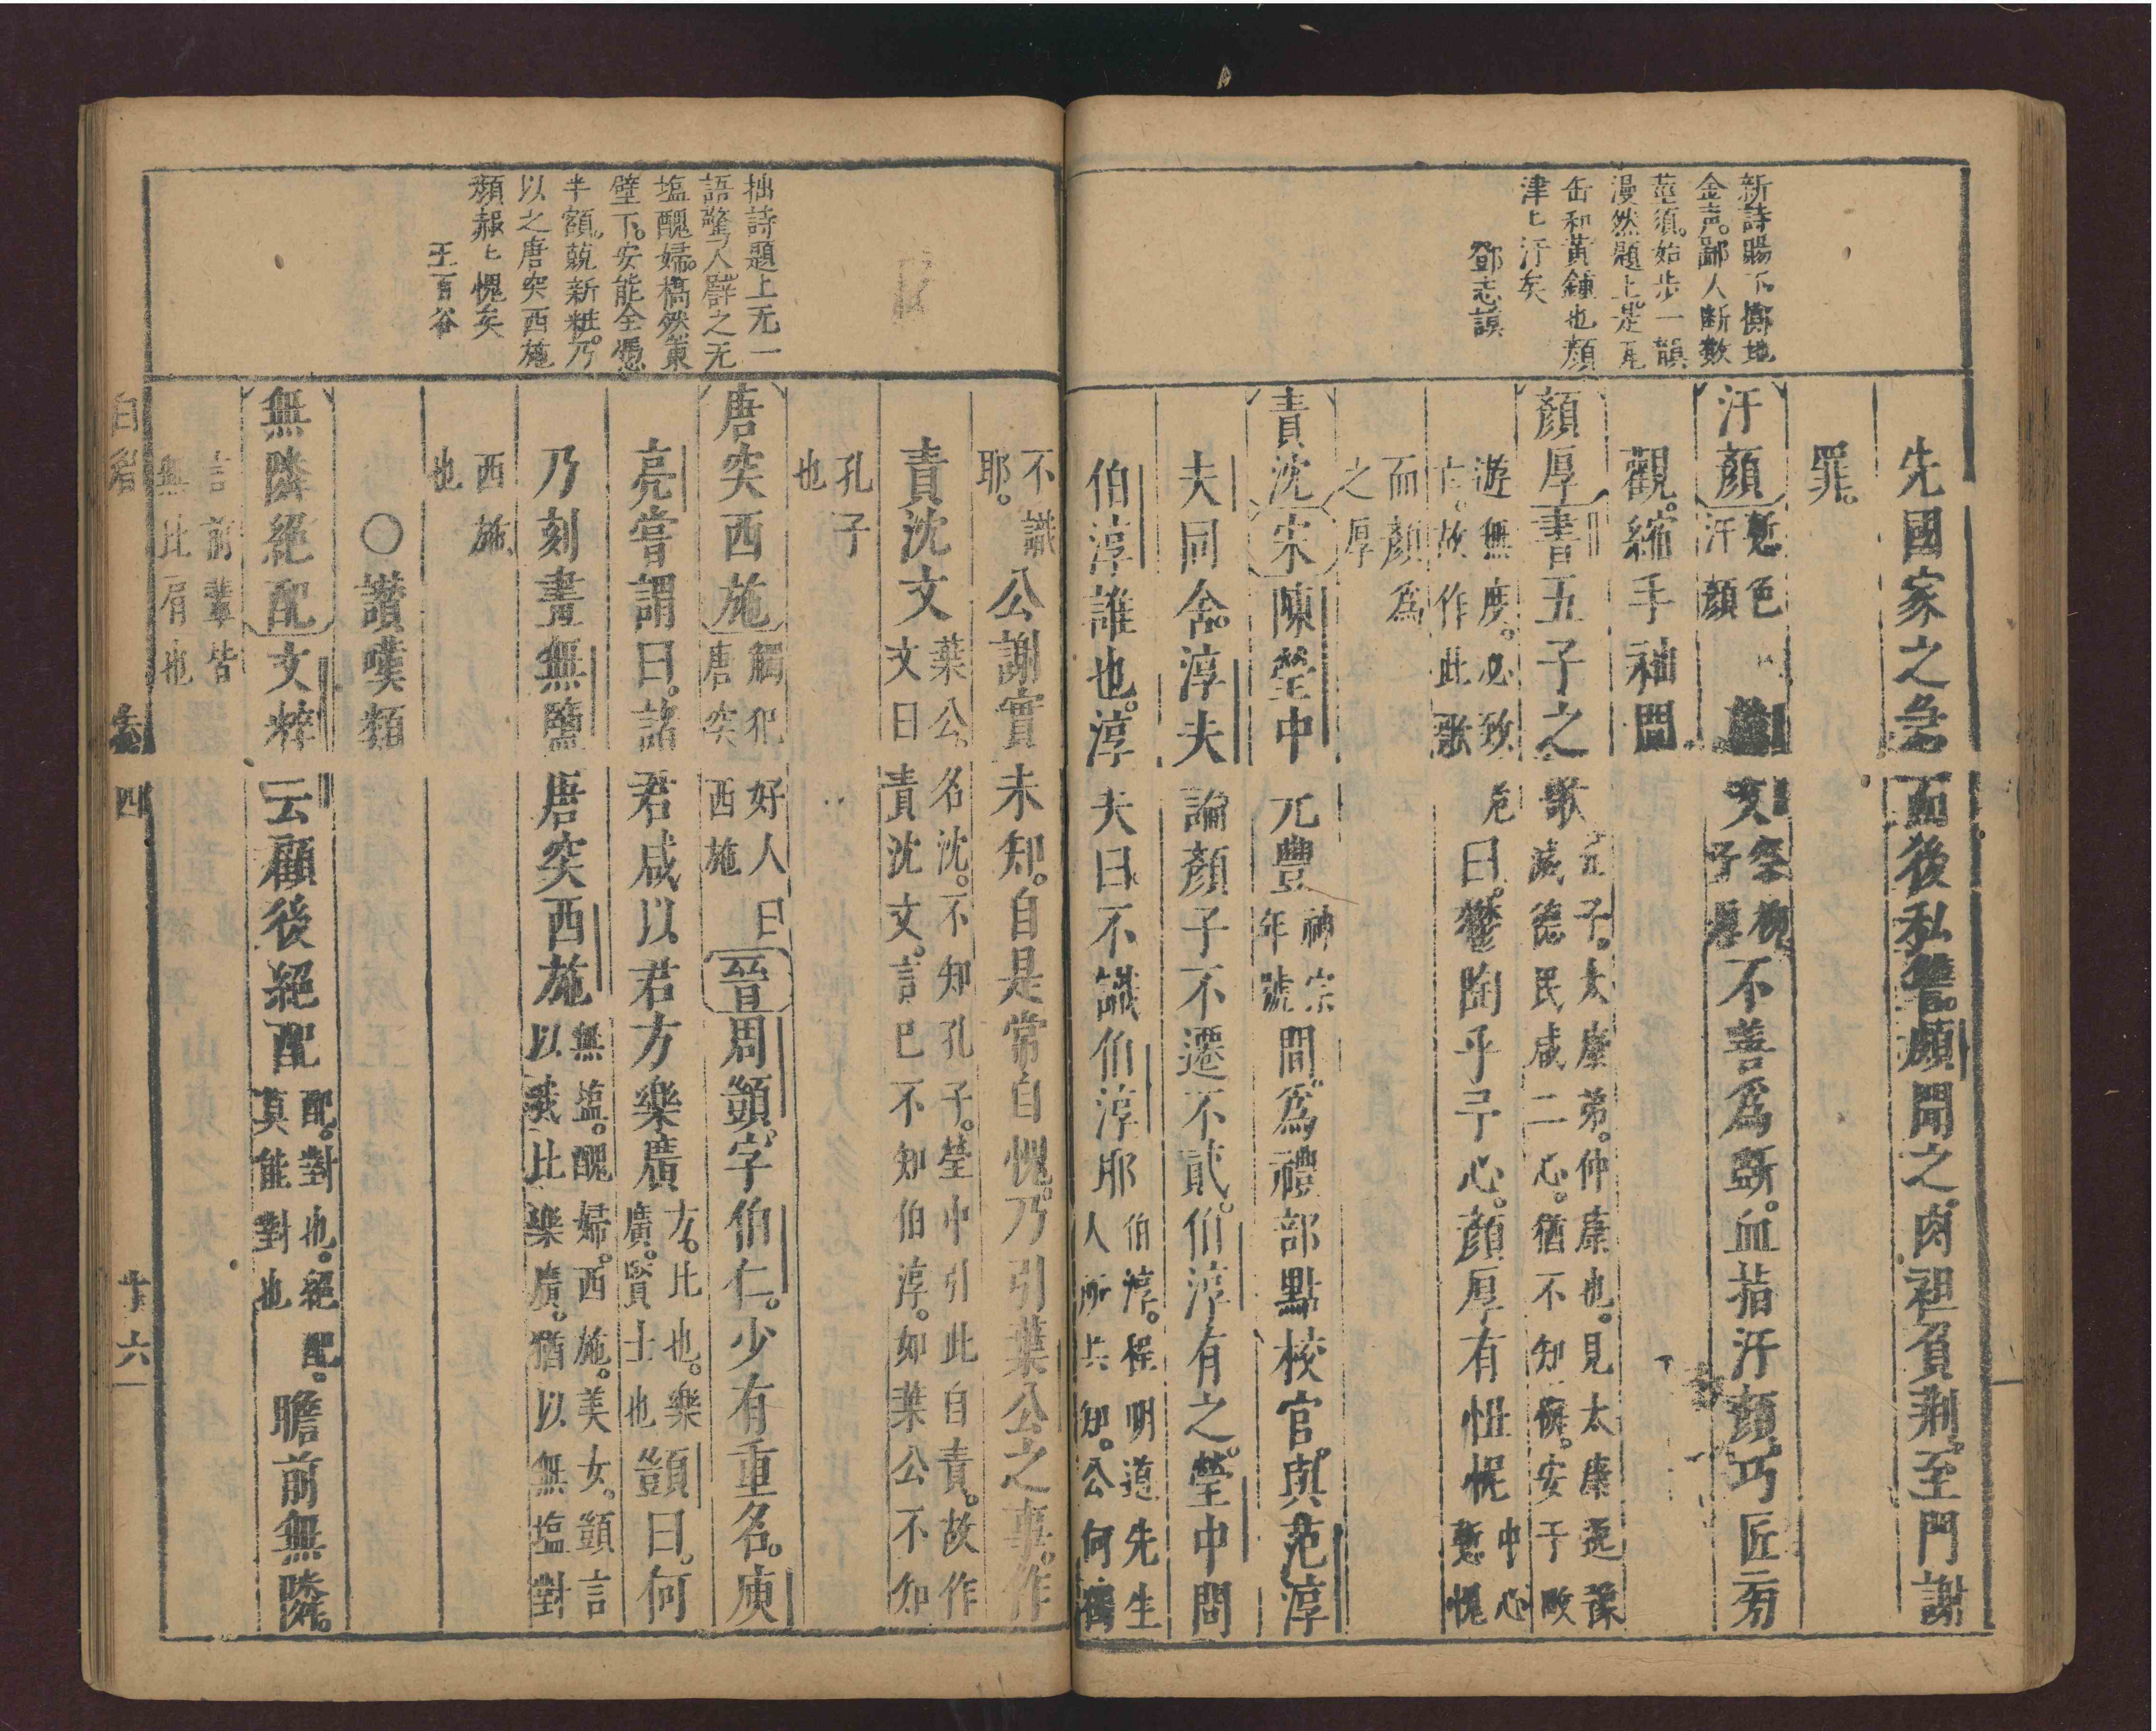 新詩賜下擲地
金声鄙人断数
莖須始步一韻
漫然題上是瓦
缶和黃鍾也顏
津〻汗矣
鄧志謨
先國家之急而後私讐。頗聞之。肉袒負荆。至門謝
罪。
汗顏
慙色
汗顏
文
祭柳
子厚
不善爲斲。血指汗顏。巧匠旁
觀。縮手袖間
顏厚
書五子之歌
五子。太康弟。仲康也。見太康逸豫
滅德民咸二心。猶不知悔。安于畋
遊無度。必致
亡。故作此歌
曰。鬱陶乎予心。顏厚有忸怩
中心
慙愧
而顏爲
之厚
責沈
宋
陳瑩中
元豐
神宗
年號
間。爲禮部點校官。與范淳
夫同舍。淳夫論顏子不遷不貳。伯淳有之。瑩中問
伯淳誰也。淳夫曰。不識伯淳耶
伯淳。程明道先生
人所共知。公何獨
不識
耶。
公謝實未知。自是常自愧。乃引葉公之事。作
責沈文
葉公。名沈。不知孔子。瑩中引此自責。故作
文曰責沈文。言已不知伯淳。如葉公不知
孔子
也
唐突西施
觸犯好人曰
唐突西施
晉
周顗。字伯仁。少有重名。庾
亮嘗謂曰。諸君咸以君方樂廣
方。比也。樂
廣。賢士也
顗曰。何
乃刻畫無鹽唐突西施
無塩。醜婦。西施。美女。顗言
以我比樂廣。猶以無塩對
西施
也
○讃嘆類
無隣絕配
文粹云顧後絕配
配。對也。絕配。
莫能對也
瞻前無隣。
言前輩皆
無此肩也
拙詩題上无一
語驚人。辟之无
塩醜婦。槁然東
壁下。安能全憑
半額。競新粧。乃
以之唐突西施
頰赧〻愧矣
王百谷
四
十六